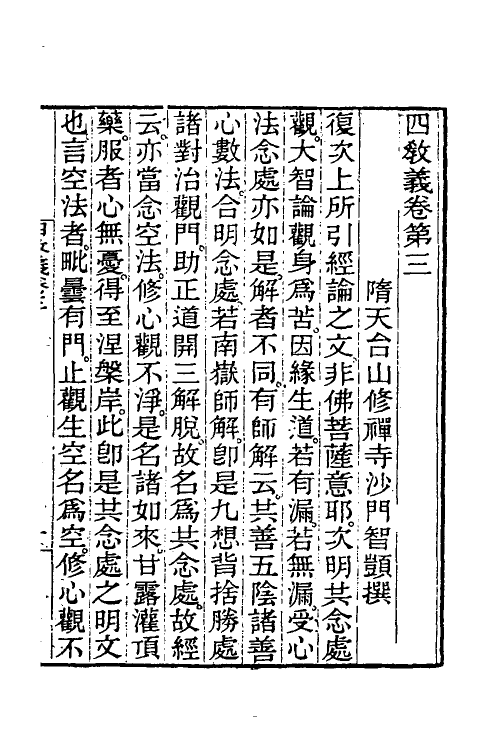 四教義卷第三
隋天台山修禪寺沙門智顗撰
復次上所引經論之文非佛菩薩意耶。次明共念處
觀。大智論觀身爲苦。因緣生道。若有漏。若無漏。受心
法念處亦如是。解者不同。有師解云。共善五陰諸善
心數法。合明念處。若南嶽師解。卽是九想背捨勝處
諸對治觀門。助正道開三解脫。故名爲共念處。故經
云。亦當念空法。修心觀不淨。是名諸如來。甘露灌頂
藥。服者心無憂。得至涅槃岸。此卽是共念處之明文
也。言空法者。毗曇有門。止觀生空名爲空。修心觀不